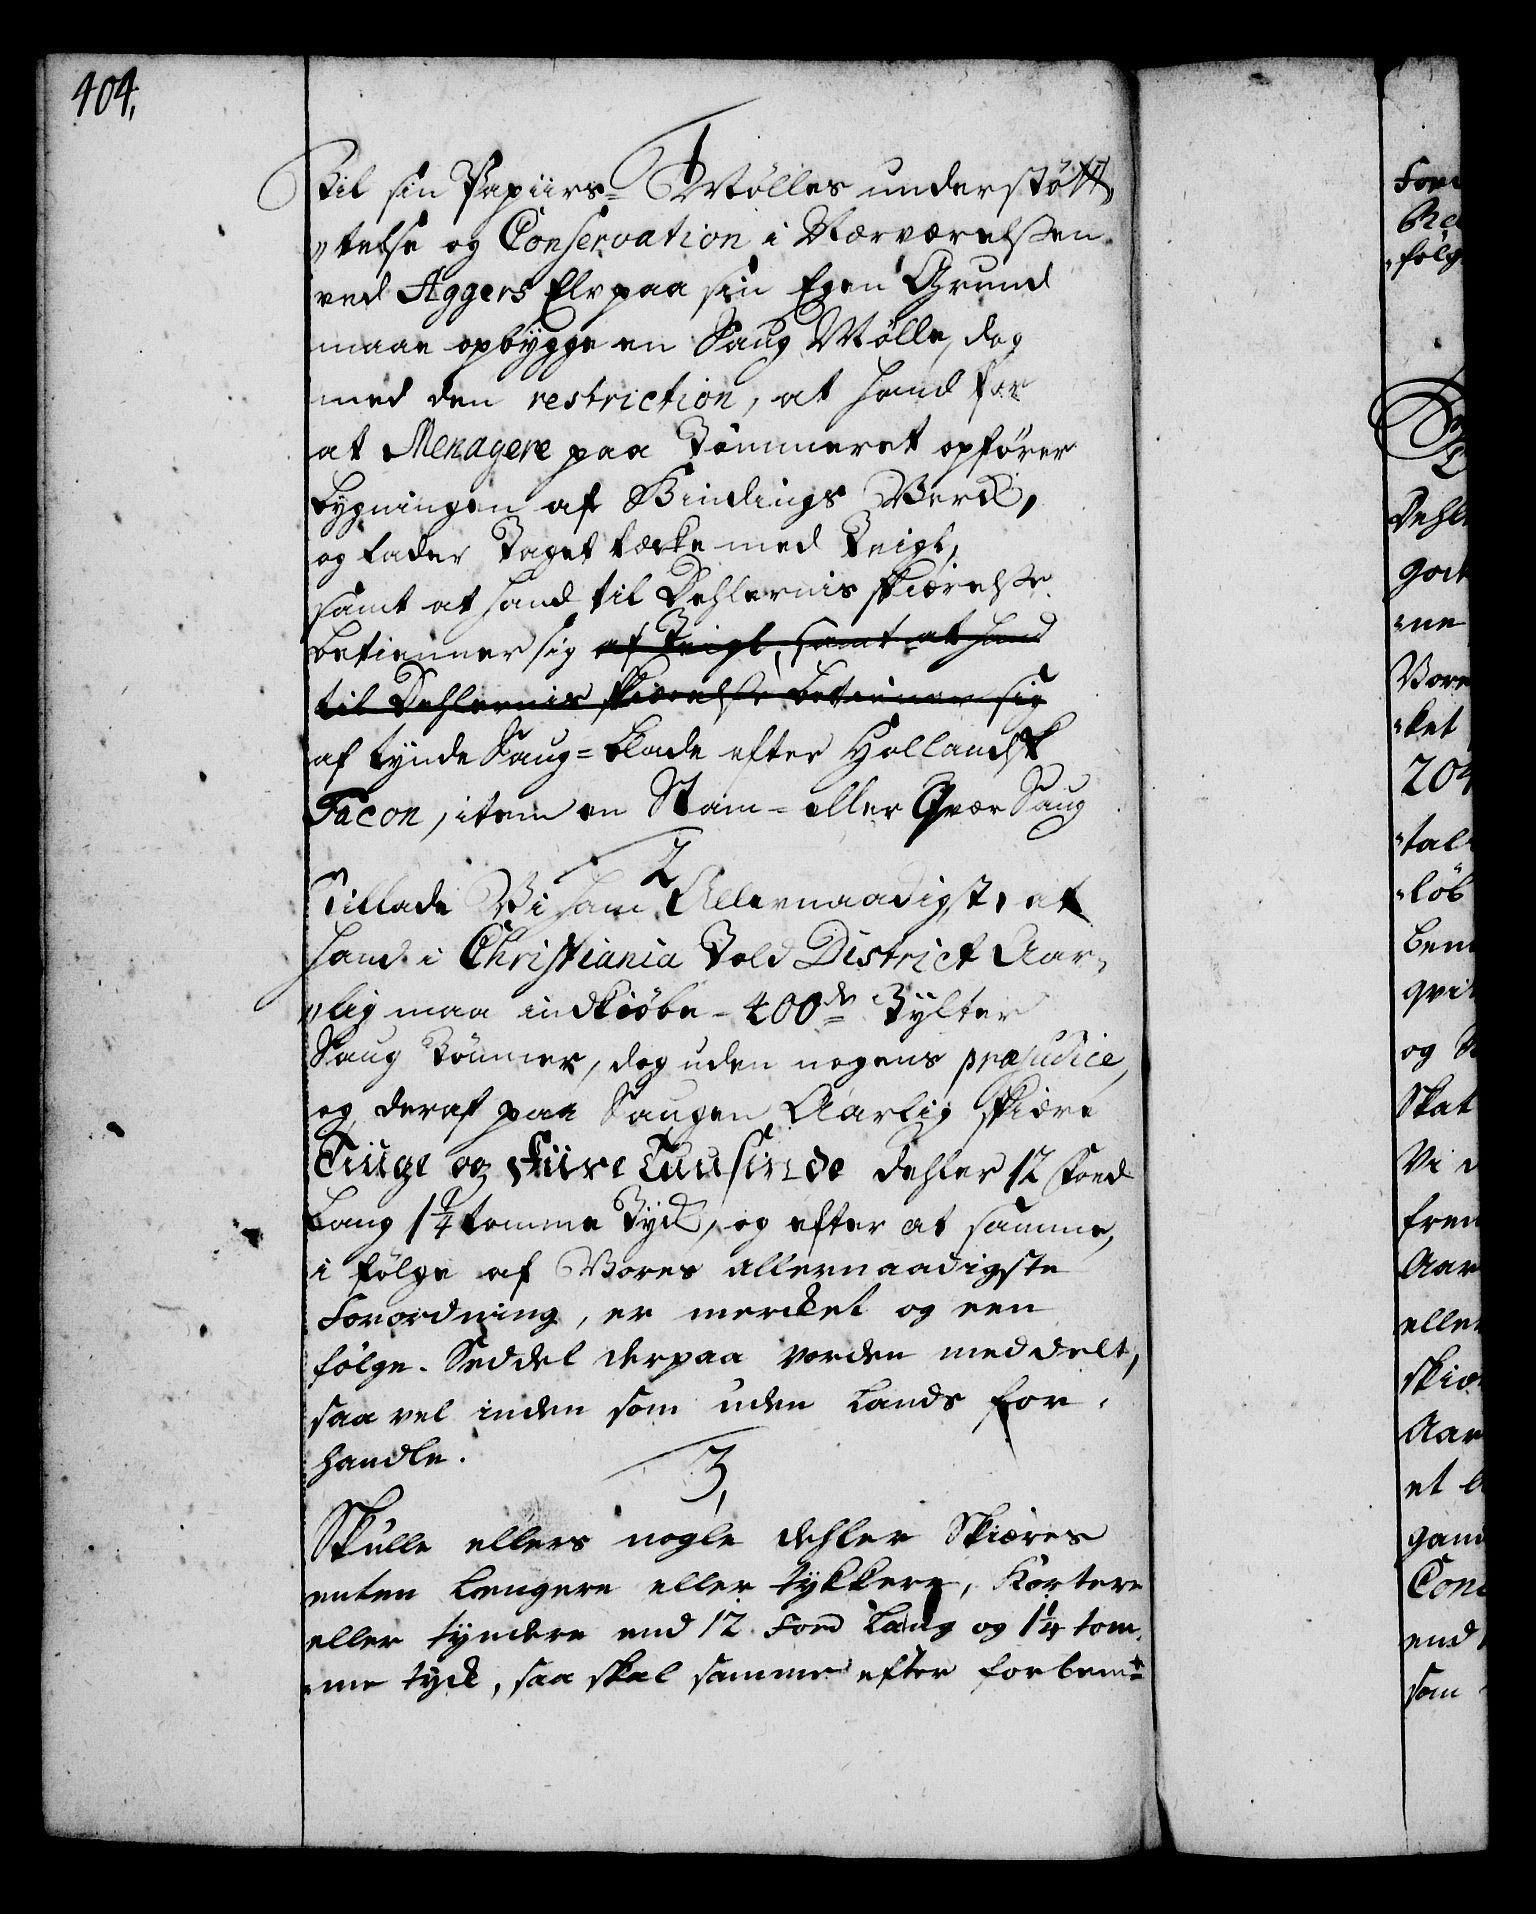 404.
1
Til sin Papiirs- Mølles understøtt
„telse og Conservation i Nærværelsen
ved Aggers Elv paa sin Egen Grund
maae opbygge en Saug Mølle, dog
med den restriction, at hand for
at Menagere paa Tømmeret opfører
bygningen af Bindings Verck,
og lader Taget tække med Teigl,
samt at hand til Dehlernis skiærelse
betienner sig af Teigl, samt at hand
til Dehlernis skiærelse betienner sig
af tynde Saug-blade efter Hollandsk
Facon, item en Stam- eller Qvær Saug
2
Tillade Vi ham Allernaadigst, at
hand i Christiania Told District Aar-
„lig maa indkiøbe 400de Tylter
Saug Tømmer, dog uden nogens præjudice,
og deraf paa Saugen Aarlig skiære
Tiuge og Fiire Tuusinde dehler 12 Foed
Lang 1 1/4 tomme Tyck, og efter at samme,
i følge af Vores allernaadigste
Forordning, er mercket og een
følge-Seddel derpaa vorden meddelt,
saa vel inden som uden Lands for-
handle.
3,
Skulle ellers nogle dehler Skiæres
enten Længere eller tykkere, Kortere
eller tyndere end 12 Foed Lang og 1 1/4 tom-
„me tyck, saa skal samme efter forbemte
Dehl
„ne
„ket
204
„tal
„løb
og
Skat
Vi
Aar
elle
skiæ
Aar
et
end
som